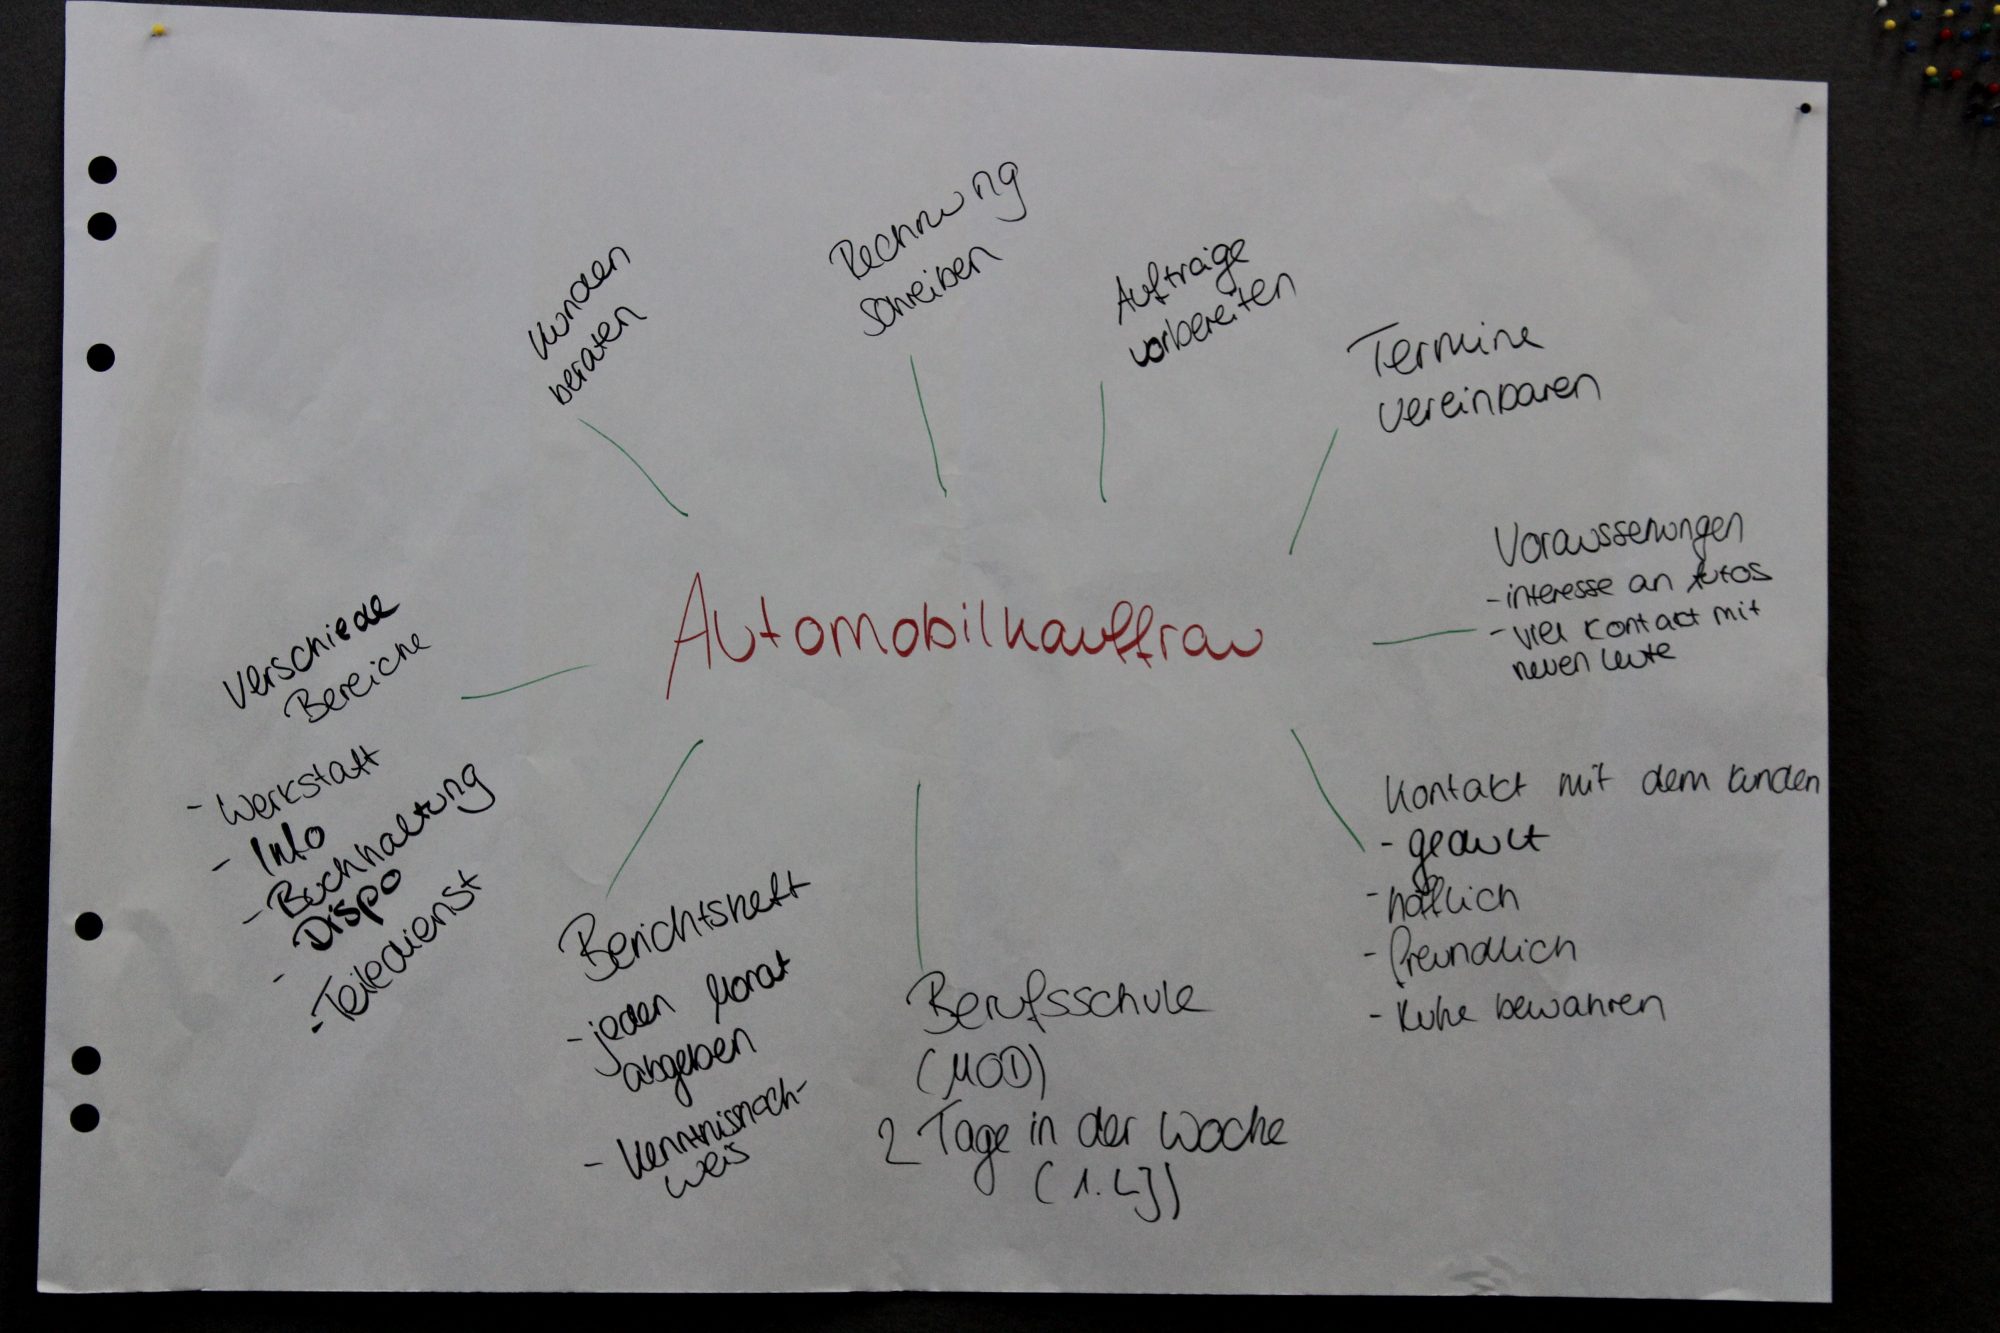 Kunden
beraten
Rechnung
schreiben
Aufträge
vorbereiten
Termine
vereinbaren
Voraussetzungen
- interesse an Autos
- viel Kontakt mit
neuen Leute
Automobilkauffrau
Verschiede
Bereiche
- Werkstatt
- Info
- Buchhaltung
- Dispo
- Teiledienst
Berichtsheft
- jeden Monat
abgeben
- Kenntnisnach-
weis
Berufsschule
(MOD)
2 Tage in der Woche
(1. LJ)
Kontakt mit dem Kunden
- geduld
- höflich
- freundlich
- Ruhe bewahren